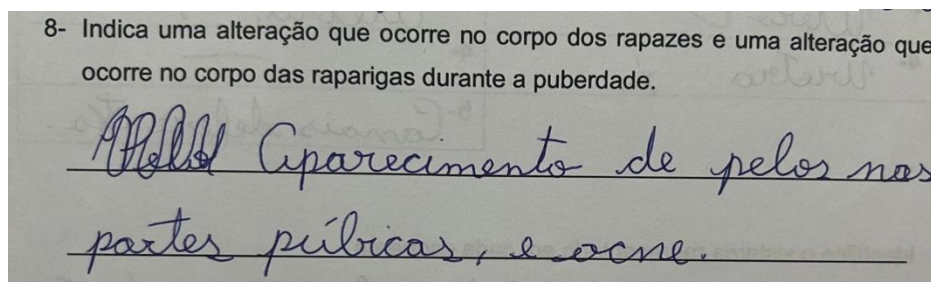 8- Indica uma alteração que ocorre no corpo dos rapazes e uma alteração que
ocorre no corpo das raparigas durante a puberdade.
Aparecimento de pelos nas
partes púbicas, e acne.